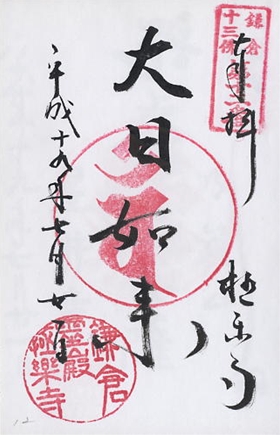 鎌倉
十三佛
第十二番
奉拝
極楽寺
大日如来
平成十九年七月廿一日
鎌倉
靈殿
極樂寺
12